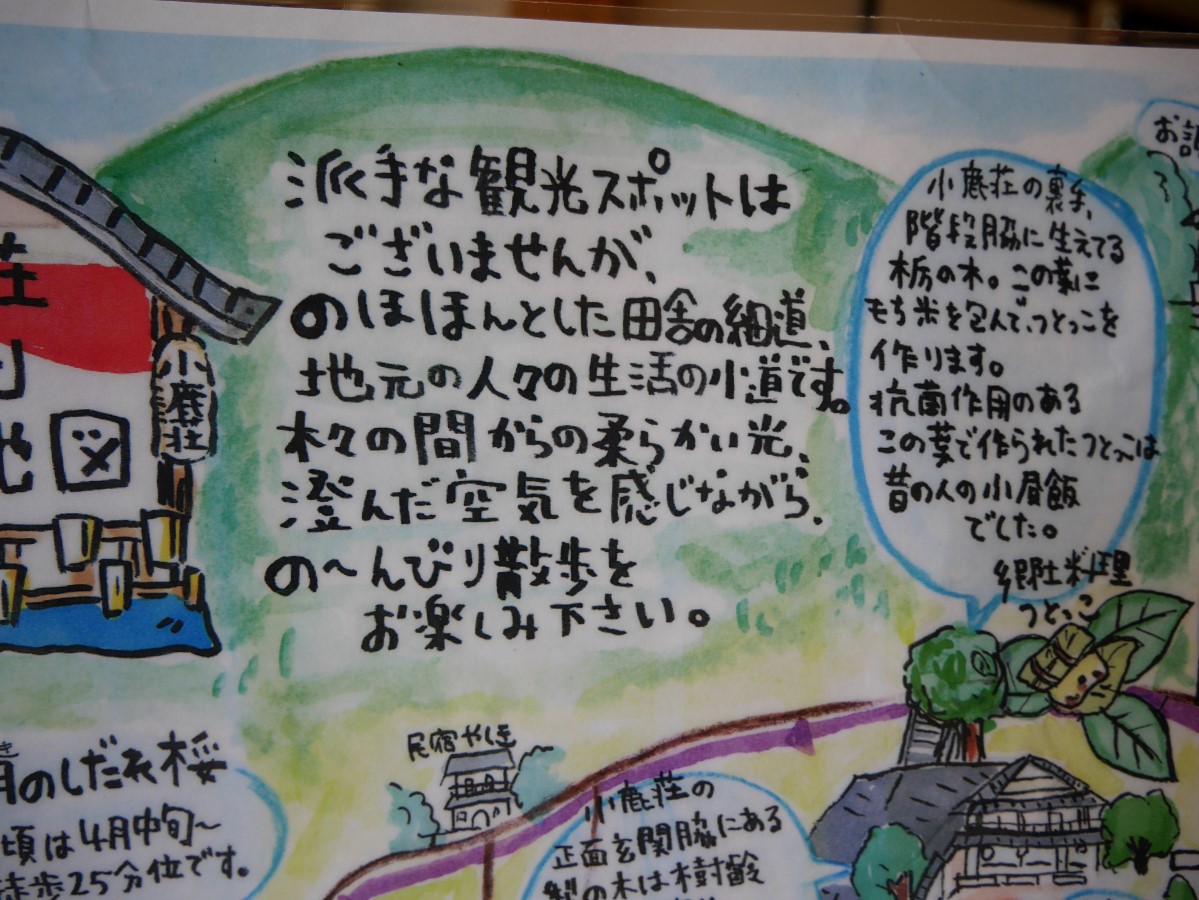 派手な観光スポットは
ございませんが、
のほほんとした田舎の細道、
地元の人々の生活の小道です。
木々の間からの柔らかい光、
澄んだ空気を感じながら、
の〜んびり散歩を
お楽しみ下さい。
小鹿荘の裏手、
階段脇に生えてる
栃の木。この葉に
もち米を包んで、つとっこを
作ります。
抗菌作用のある
この葉で作られたつとっこは
昔の人の小昼飯
でした。
郷土料理
つとっこ
お
荘
地図
小鹿荘
民宿やまほ
のしだれ桜
頃は4月中旬〜
徒歩25分位です。
小鹿荘の
正面玄関脇にある
の木は樹齢